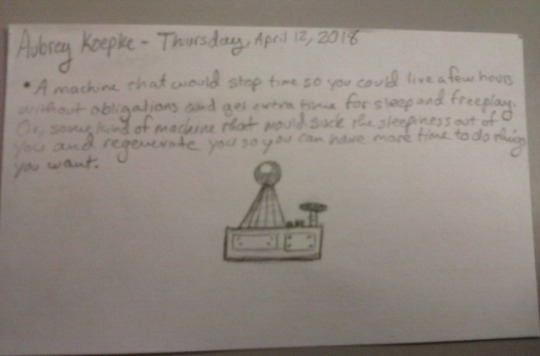 Aubrey Koepke - Thursday, April 12, 2018
• A machine that would stop time so you could live a few hours
without obligations and get extra time for sleep and freeplay.
Or, some kind of machine that would suck the sleepiness out of
you and regenerate you so you can have more time to do things
you want.